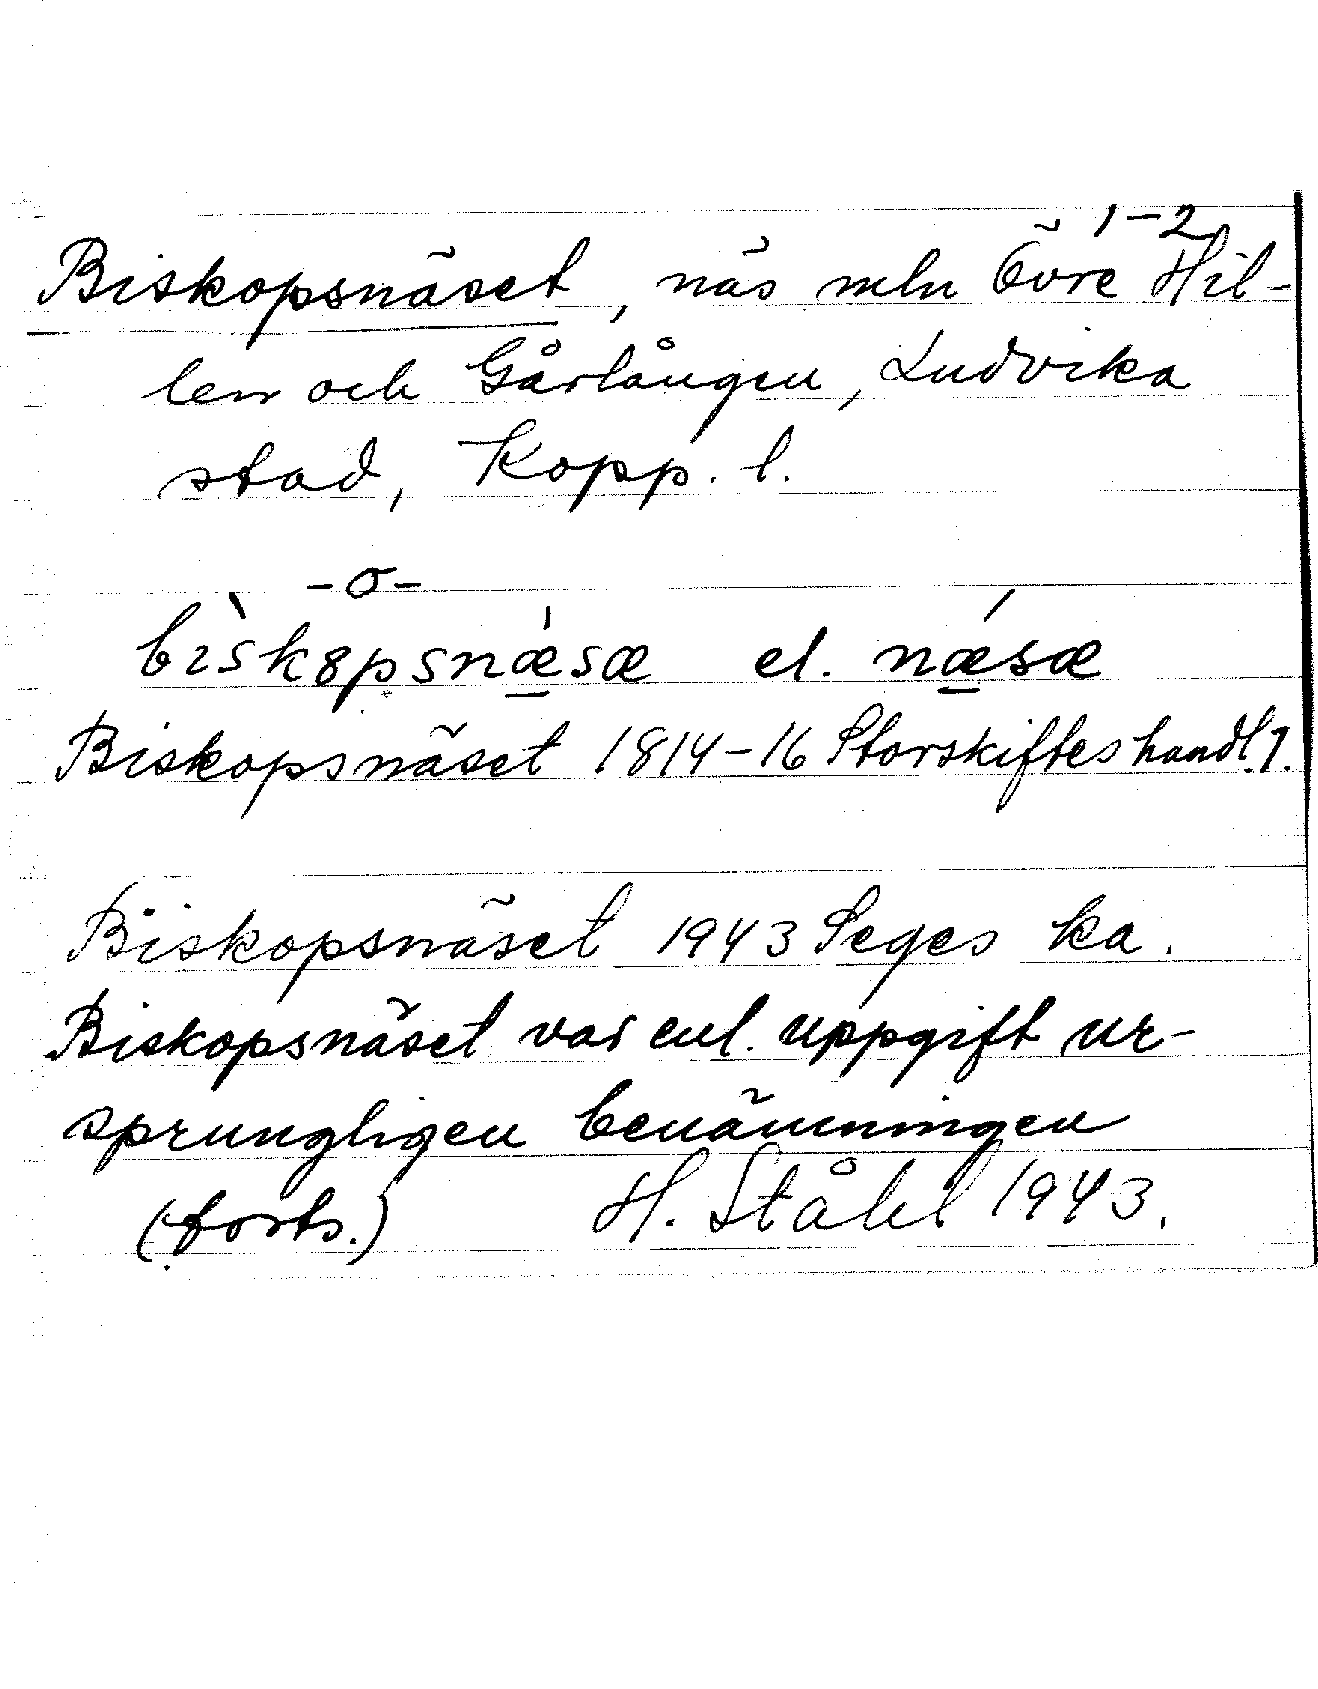 1-2
Biskopsnäset, näs mln Övre Hil-
len och Gårlången, Ludvika
stad, Kopp. l.
-o-
bìskopsnǽsæ el. nǽsæ
Biskopsnäset 1814-16 Storskifteshandl. 1.
Biskopsnäset 1943 Seges ka.
Biskopsnäset var enl. uppgift ur-
sprungligen benämningen
(forts.) H. Ståhl 1943.